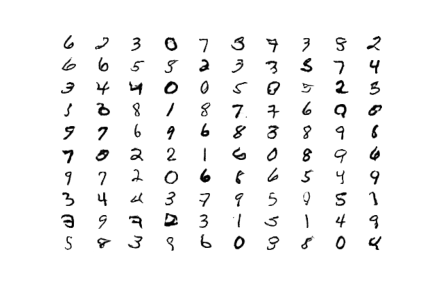 6 2 3 0 7 3 7 3 8 2
6 6 5 8 2 3 3 5 7 4
3 4 4 0 0 5 0 5 2 5
3 8 1 8 7 7 6 0 0
9 7 6 9 6 8 3 8 9 8
7 0 2 2 1 6 0 8 9 6
9 7 2 0 6 8 6 5 4 9
3 4 4 3 7 9 5 0 5 1
3 9 7 2 3 1 5 1 4 9
5 8 3 9 6 0 8 8 0 4